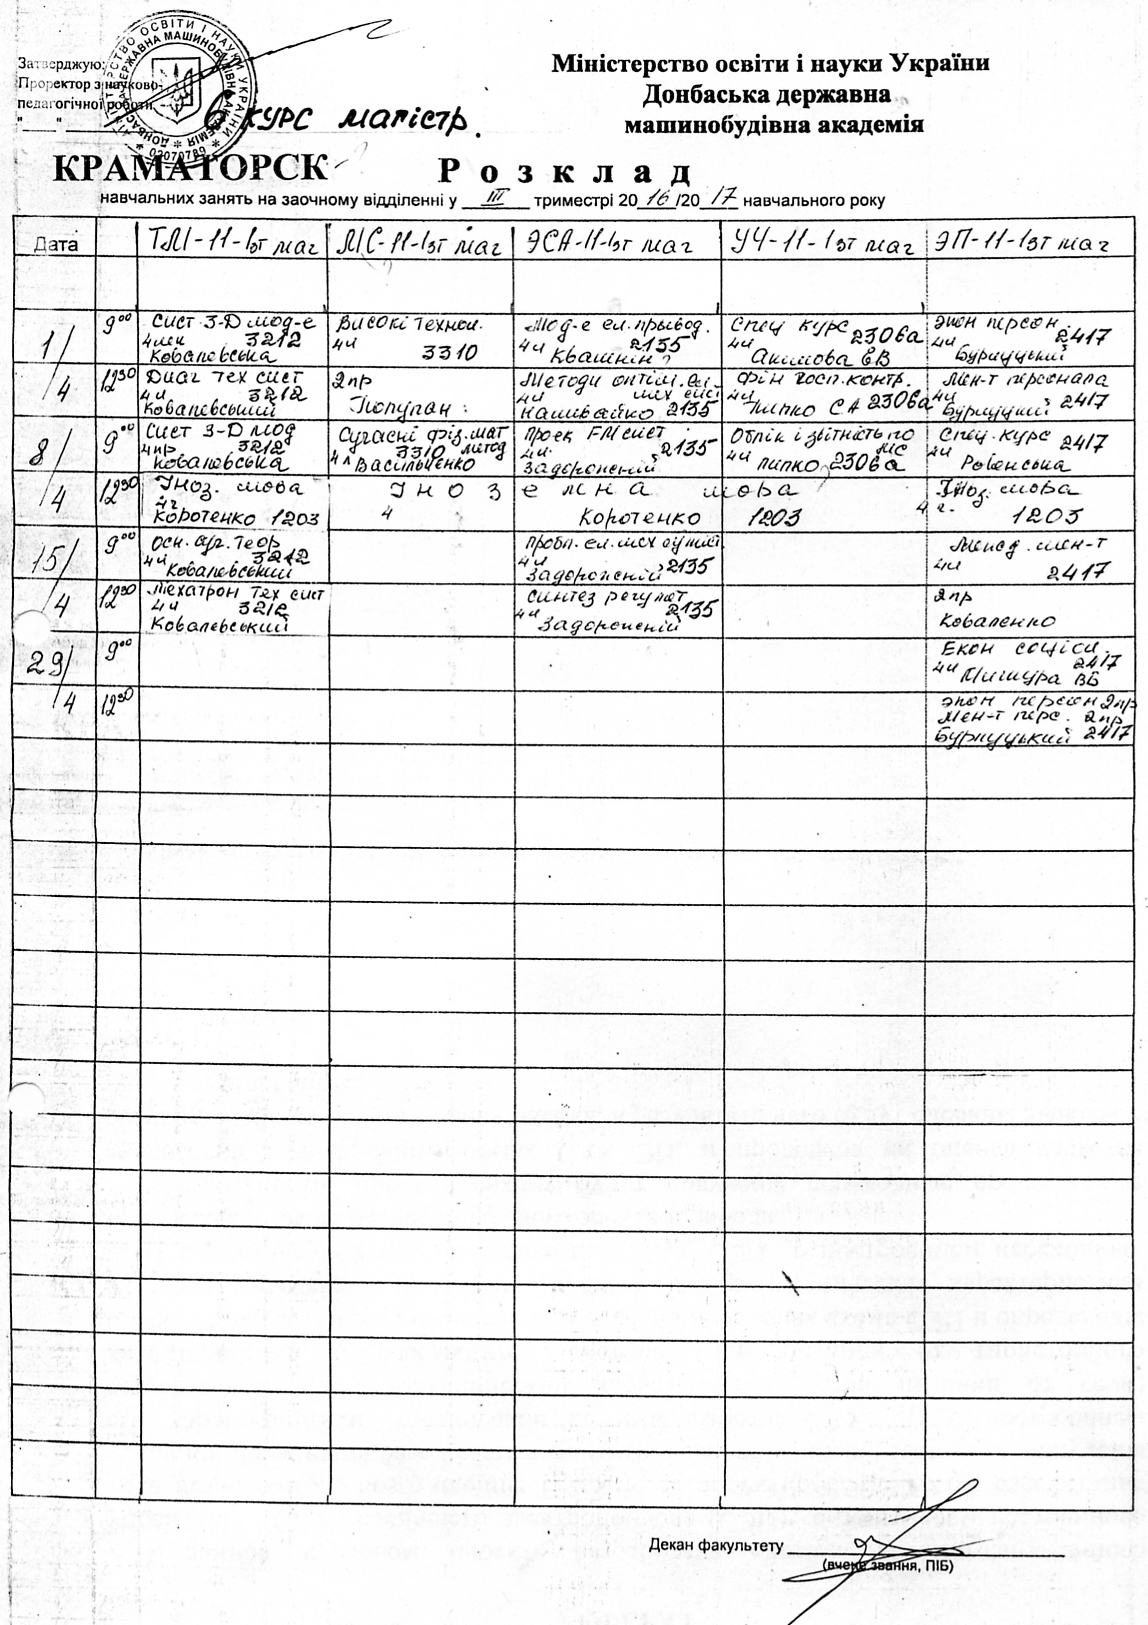 Затверджую:
Проректор з науково-
педагогічної роботи
"____"
02070789
6 КУРС магістр.
Міністерство освіти і науки України
Донбаська державна
машинобудівна академія
КРАМАТОРСК
Розклад
навчальних занять на заочному відділенні у III триместрі 2016/2017 навчального року
Дата
ТМ-11-1зт маг
МС-11-1зт маг
ЭСА-11-1зт маг
УЧ-11-1зт маг
ЭП-11-1зт маг
1/4
9⁰⁰
Сист 3-D мод-е
4лек 3212
Ковалевська
Високі технол.
4ч 3310
Мод-е ел. привод.
4ч 2135
Квашнін
Спец курс 2306а
4ч
Акимова ЕВ
Экон персон.
4ч 2417
Бурлуцький
12³⁰
Диаг тех сист
4ч 3212
Ковалевський
2пр
Методи оптім. ел.
4ч мех сист
Наливайко 2135
Фін госп. контр.
4ч
Липко СА 2306а
Мен-т персонала
4ч 2417
Бурлуцький
8/4
9⁰⁰
Сист 3-D мод
4пр 3212
Ковалевська
Сучасні фіз. мат
3310 метод
4л Васильченко
Проек FM сист
4ч 2135
Задорожній
Облік і звітність по
4ч МС
Липко 2306а
Спец. курс
4ч 2417
Ровенська
12³⁰
Іноз. мова
4г
Коротенко 1203
Іноземна мова
4
Коротенко 1203
Іноз. мова
4г. 1203
15/4
9⁰⁰
Осн. арг. теор
4ч 3212
Ковалевський
Пробл. ел. мех
4ч 2135
Задорожній
Менед. мен-т
4ч
2417
12³⁰
Мехатрон тех сист
4ч 3212
Ковалевський
Синтез регулят
4ч 2135
Задорожній
2пр
Коваленко
29/4
9⁰⁰
Екон соціол.
4ч 2417
Мишура ВБ
12³⁰
Экон персон 2пр
Мен-т перс. 2пр
Бурлуцький 2417
Декан факультету
(вчене звання, ПІБ)